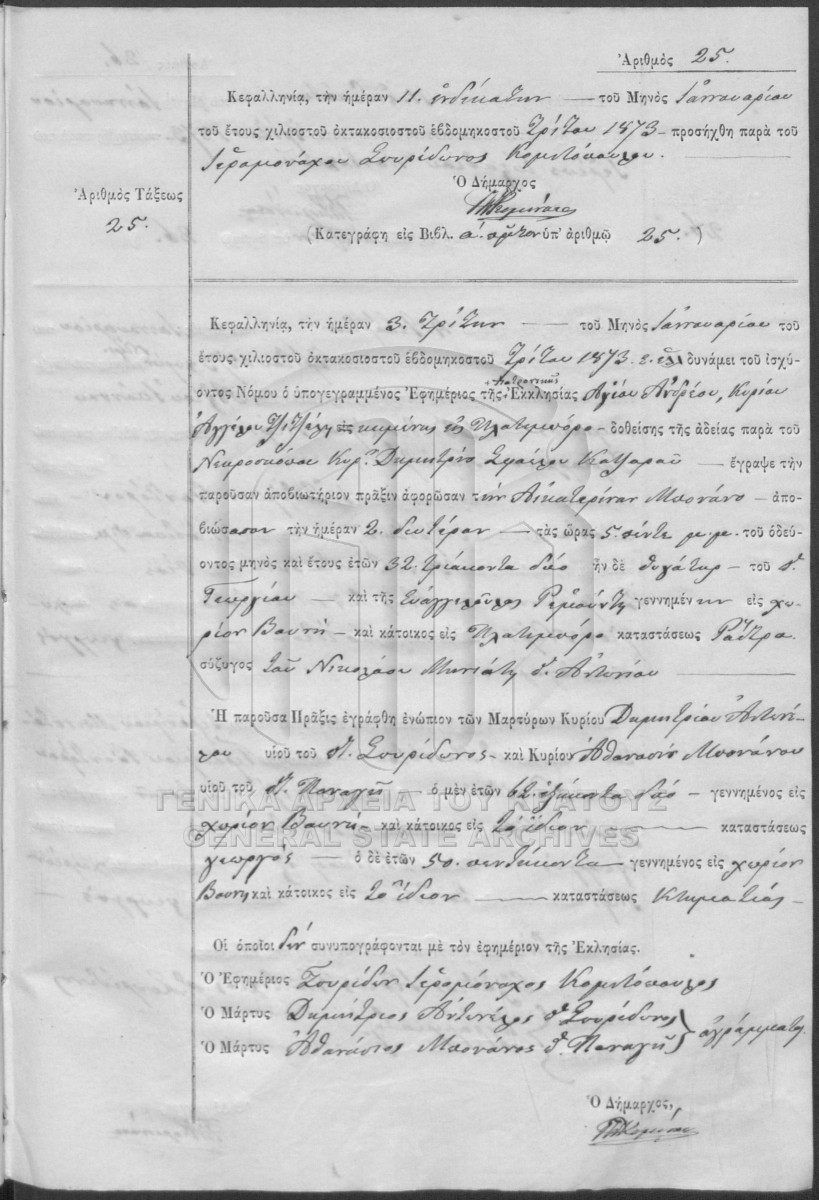 Ἀριθμὸς 25.
Κεφαλληνίᾳ, τὴν ἡμέραν 11. ἑνδεκάτην — τοῦ Μηνὸς Ἰαννουαρίου
τοῦ ἔτους χιλιοστοῦ ὀκτακοσιοστοῦ ἑβδομηκοστοῦ Τρίτου 1873 — προσήχθη παρὰ τοῦ
Ἱερομονάχου Σπυρίδωνος Κομιτόπουλου.
Ὁ Δήμαρχος
Ἀριθμὸς Τάξεως
25.
(Κατεγράφη εἰς Βιβλ. α. πρῶτον ὑπ' ἀριθμῷ 25.)
Κεφαλληνίᾳ, τὴν ἡμέραν 3. Τρίτην — τοῦ Μηνὸς Ἰαννουαρίου τοῦ
ἔτους χιλιοστοῦ ὀκτακοσιοστοῦ ἑβδομηκοστοῦ Τρίτου 1873. δυνάμει τοῦ ἰσχύ
οντος Νόμου ὁ ὑπογεγραμμένος Ἐφημέριος τῆς Ἐκκλησίας Ἁγίου Ἀνδρέου, Κυρίου
Ἀγγέλου κειμένης εἰς — δοθείσης τῆς ἀδείας παρὰ τοῦ
Νεκροσκόπου Κυρ. Δημητρίου — ἔγραψε τὴν
παροῦσαν ἀποβιωτήριον πρᾶξιν ἀφορῶσαν τὴν Αἰκατερίναν Μπονάνο — ἀπο-
βιώσασαν τὴν ἡμέραν 2. δευτέραν — τὰς ὥρας 5. πέντε μ. μ. τοῦ ὁδεύ-
οντος μηνὸς καὶ ἔτους ἐτῶν 32. τριάκοντα δύο ἦν δὲ θυγάτηρ — τοῦ π.
Γεωργίου — καὶ τῆς γεννημένην εἰς χω
ρίον Βουνὴ — καὶ κάτοικος εἰς καταστάσεως Ῥάπτρα.
σύζυγος τοῦ Νικολάου π. Ἀντωνίου
Ἡ παροῦσα Πρᾶξις ἐγράφθη ἐνώπιον τῶν Μαρτύρων Κυρίου Δημητρίου Ἀντωνέ-
λου υἱοῦ τοῦ π. Σπυρίδωνος — καὶ Κυρίου Ἀθανασίου Μπονάνου
υἱοῦ τοῦ π. Παναγῆ — ὁ μὲν ἐτῶν 62. ἑξήκοντα δύο — γεννημένος εἰς
χωρίον Βουνὴ — καὶ κάτοικος εἰς τὸ ἴδιον — καταστάσεως
γεωργὸς — ὁ δὲ ἐτῶν 50. πεντήκοντα γεννημένος εἰς χωρίον
Βουνὴ καὶ κάτοικος εἰς τὸ ἴδιον — καταστάσεως Κτηματίας —
Οἱ ὁποῖοι δὲν συνυπογράφονται μὲ τὸν ἐφημέριον τῆς Ἐκλησίας.
Ὁ Ἐφημέριος Σπυρίδων Ἱερομόναχος Κομιτόπουλος
Ὁ Μάρτυς Δημήτριος Ἀντωνέλος π. Σπυρίδωνος
Ὁ Μάρτυς Ἀθανάσιος Μπονάνος π. Παναγῆ } ἀγράμματοι.
Ὁ Δήμαρχος,
ΓΕΝΙΚΑ ΑΡΧΕΙΑ ΤΟΥ ΚΡΑΤΟΥΣ
GENERAL STATE ARCHIVES